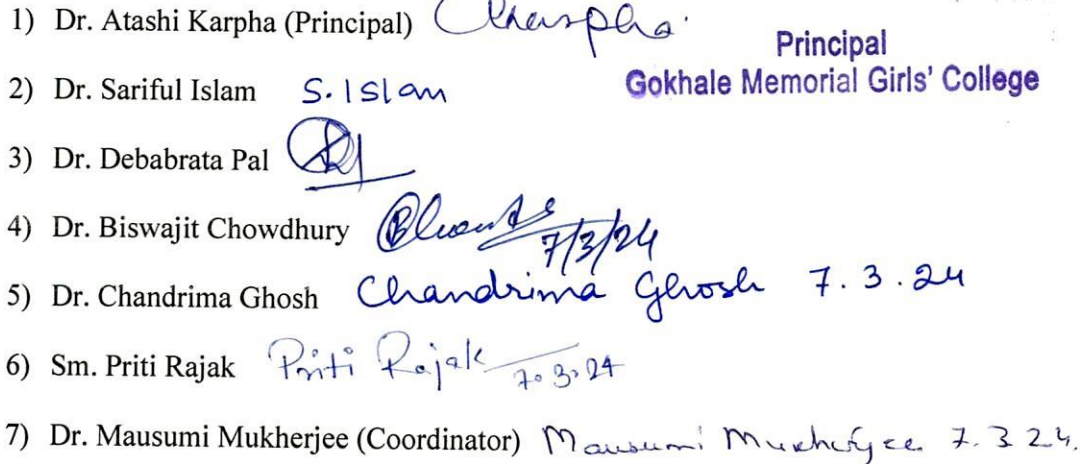 1) Dr. Atashi Karpha (Principal) AKarpha
Principal
Gokhale Memorial Girls' College
2) Dr. Sariful Islam S. Islam
3) Dr. Debabrata Pal
4) Dr. Biswajit Chowdhury 7/3/24
5) Dr. Chandrima Ghosh Chandrima Ghosh 7.3.24
6) Sm. Priti Rajak Priti Rajak 7.3.24
7) Dr. Mausumi Mukherjee (Coordinator) Mausumi Mukherjee 7.3.24.